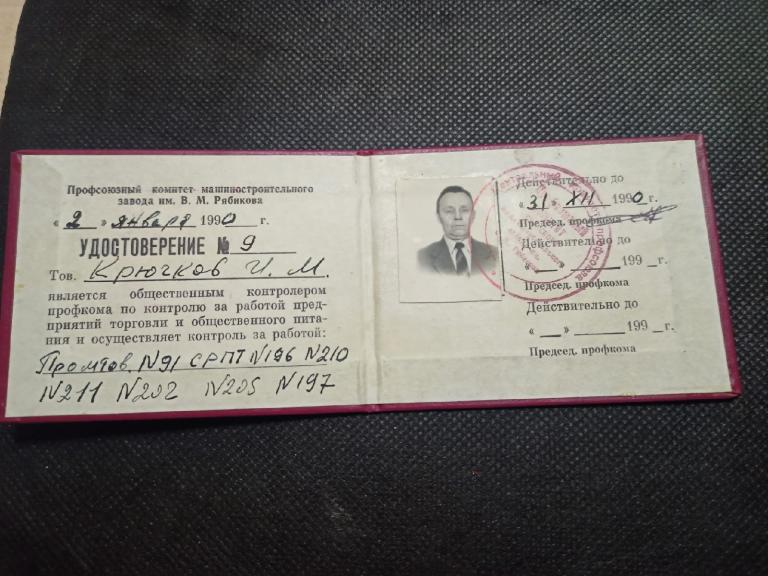 Профсоюзный комитет машиностроительного
завода им. В. М. Рябикова
« 2 » января 1990 г.
УДОСТОВЕРЕНИЕ № 9
Тов. Крючков И. М.
является общественным контролером
профкома по контролю за работой пред-
приятий торговли и общественного пита-
ния и осуществляет контроль за работой:
Промтов. N91 СРПТ N196 N210
N211 N202 N205 N197
Действительно до
« 31 » XII 1990 г.
Председ. профкома
Действительно до
« » 199 г.
Председ. профкома
Действительно до
« » 199 г.
Председ. профкома